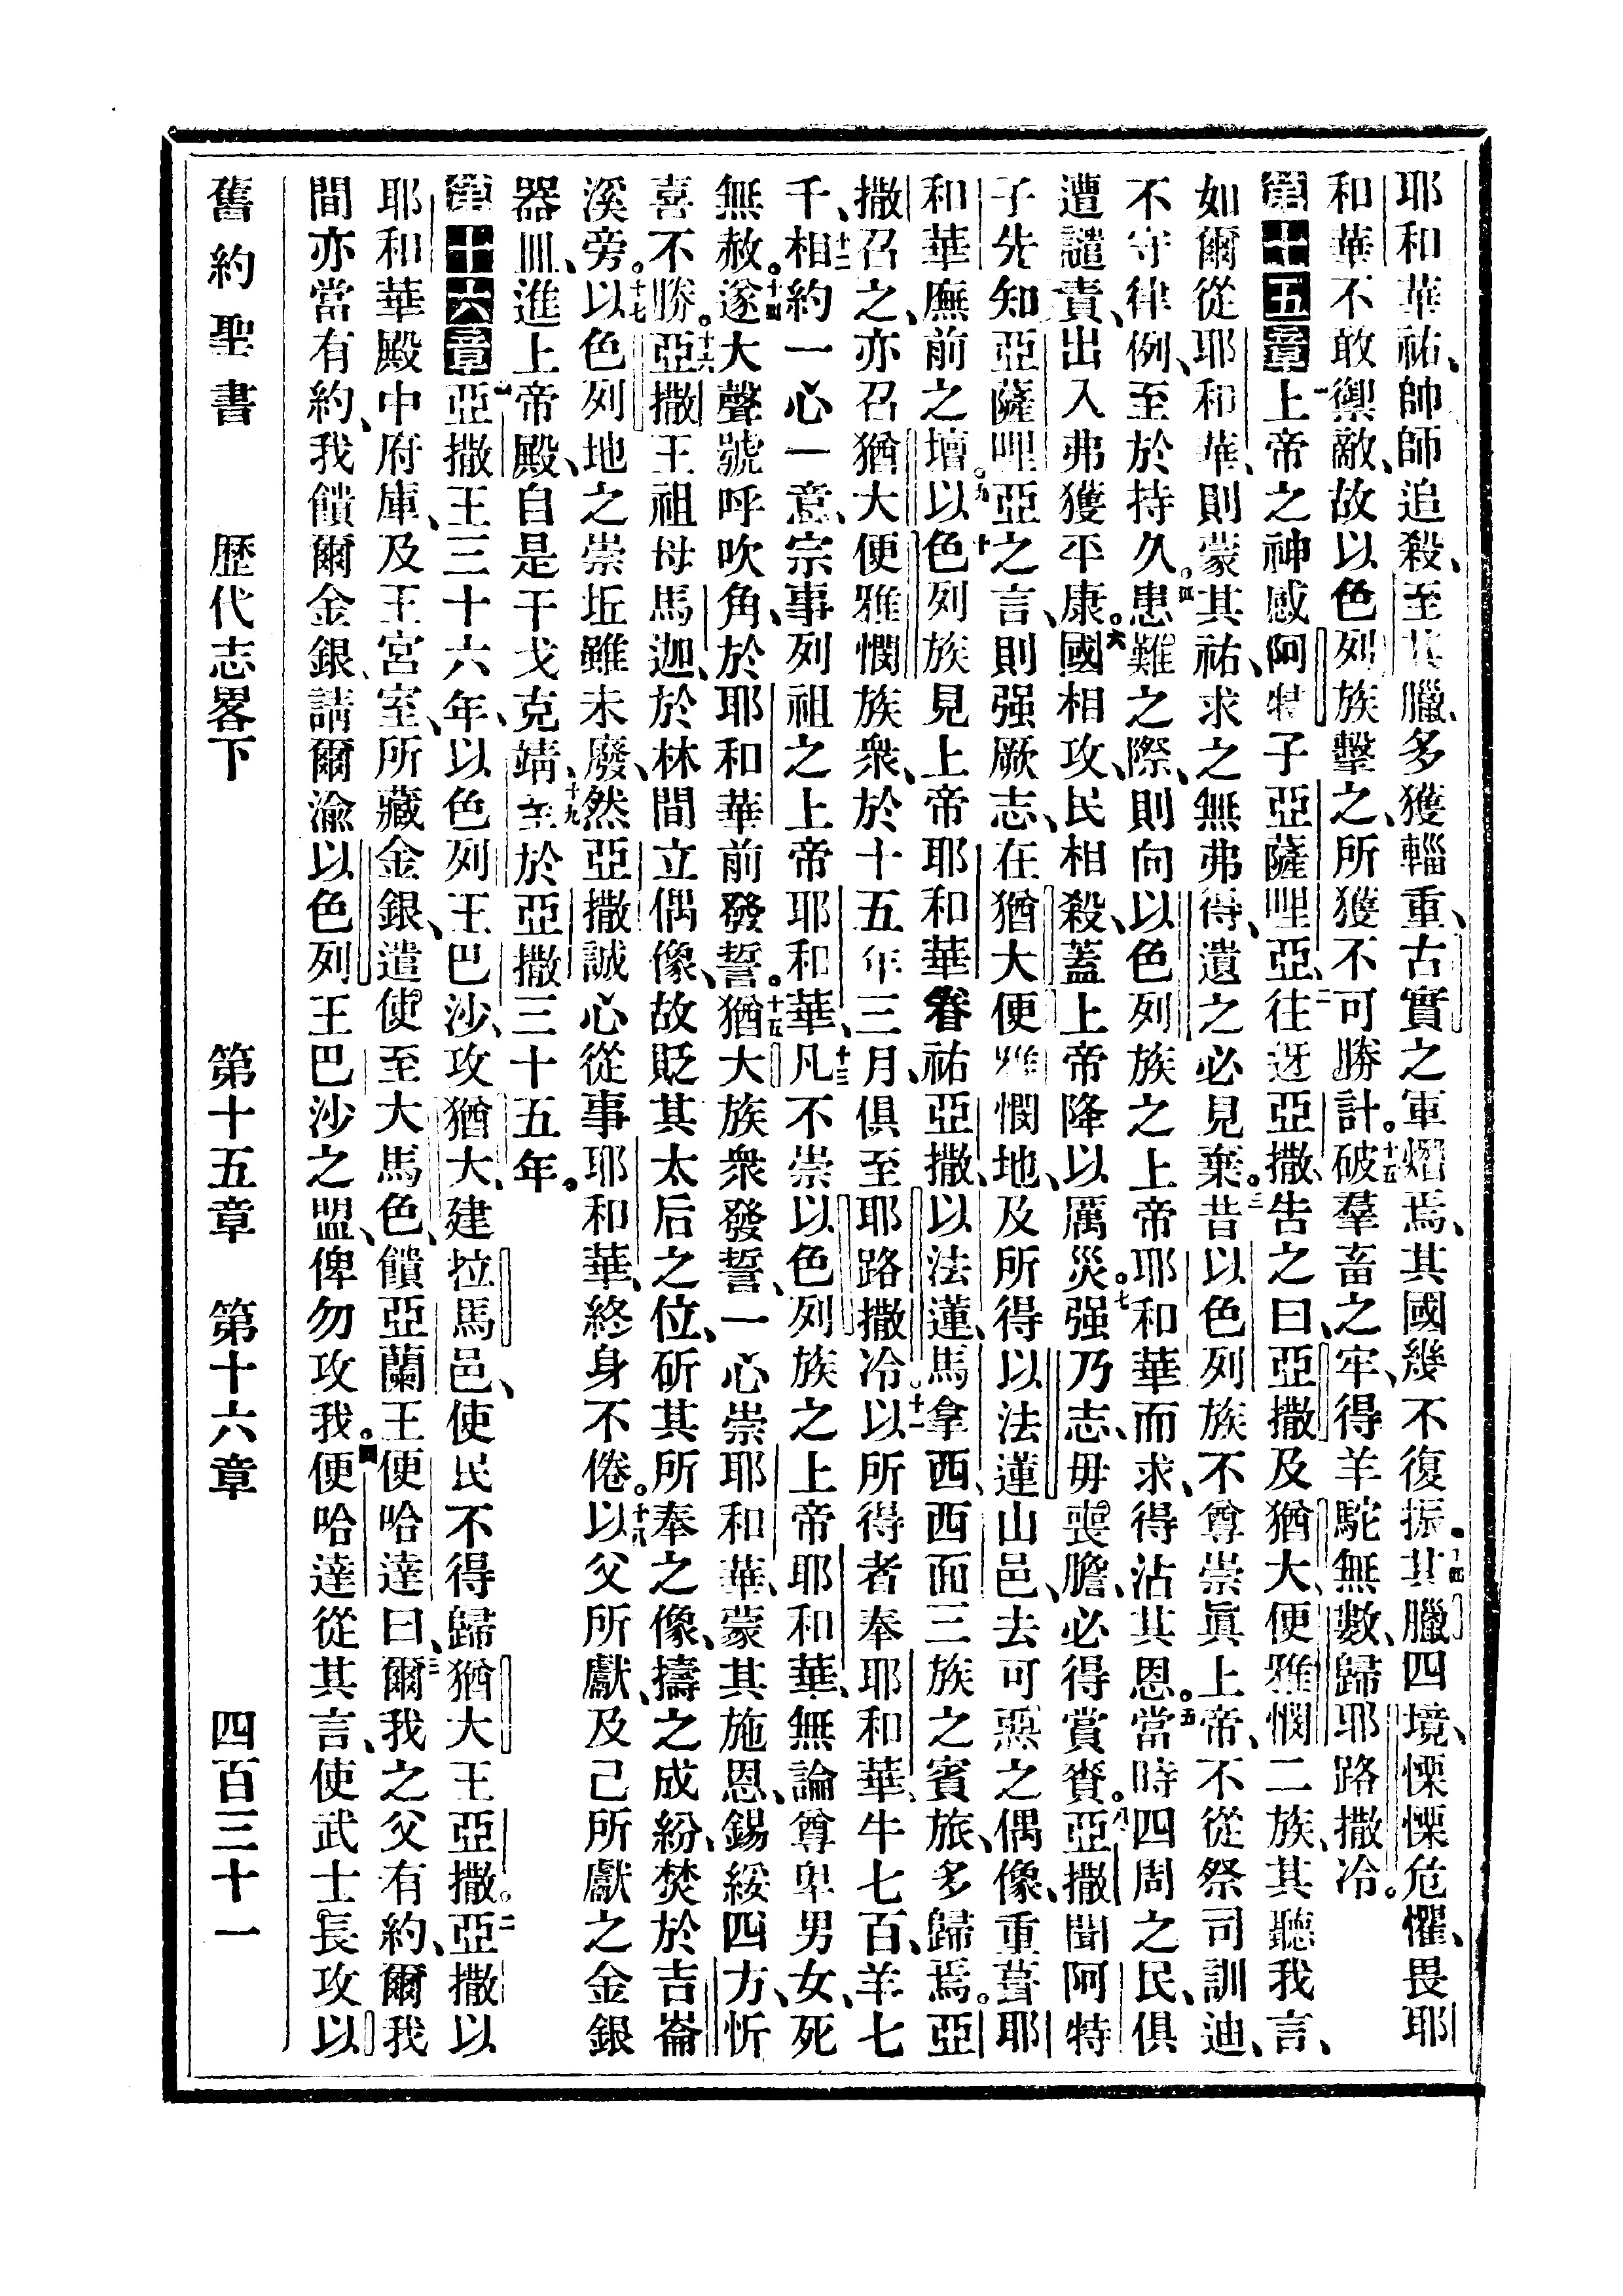 耶和華祐、帥師追殺、至其臘、多獲輜重、古實之軍熠焉、其國幾不復振。十四其臘四境、慄慄危懼、畏耶
和華不敢禦敵、故以色列族擊之、所獲不可勝計。十五破羣畜之牢、得羊駝無數、歸耶路撒冷。
第十五章一上帝之神感阿特子亞薩哩亞、二往迓亞撒、告之曰、亞撒及猶大、便雅憫二族、其聽我言、
如爾從耶和華、則蒙其祐、求之無弗得、遺之必見棄。三昔以色列族不尊崇眞上帝、不從祭司訓迪、
不守律例、至於持久。四患難之際、則向以色列族之上帝耶和華而求、得沾其恩。五當時四周之民、俱
遭譴責、出入弗獲平康。六國相攻、民相殺、蓋上帝降以厲災。七强乃志、毋喪膽、必得賞賚。八亞撒聞阿特
子先知亞薩哩亞之言、則强厥志、在猶大便雅憫地、及所得以法蓮山邑、去可惡之偶像、重葺耶
和華廡前之壇。九以色列族見上帝耶和華眷祐亞撒、以法蓮、馬拿西、西面三族之賓旅、多歸焉。亞
撒召之、亦召猶大便雅憫族衆、十於十五年三月、俱至耶路撒冷。十一以所得者奉耶和華、牛七百、羊七
千、十二相約一心一意、宗事列祖之上帝耶和華、十三凡不崇以色列族之上帝耶和華、無論尊卑男女、死
無赦。十四遂大聲號呼吹角、於耶和華前發誓。十五猶大族衆發誓、一心崇耶和華、蒙其施恩、錫綏四方、忻
喜不勝。十六亞撒王祖母馬迦、於林間立偶像、故貶其太后之位、斫其所奉之像、擣之成紛、焚於吉崙
溪旁。十七以色列地之崇坵雖未廢、然亞撒誠心從事耶和華、終身不倦。十八以父所獻、及己所獻之金銀
器皿、進上帝殿、自是干戈克靖、十九至於亞撒三十五年。
第十六章一亞撒王三十六年、以色列王巴沙、攻猶大、建拉馬邑、使民不得歸猶大王亞撒。二亞撒以
耶和華殿中府庫、及王宮室、所藏金銀、遣使至大馬色、饋亞蘭王便哈達曰、三爾我之父有約、爾我
間亦當有約、我饋爾金銀、請爾渝以色列王巴沙之盟、俾勿攻我。四便哈達從其言、使武士長攻以
舊約聖書　歷代志畧下　第十五章　第十六章　四百三十一